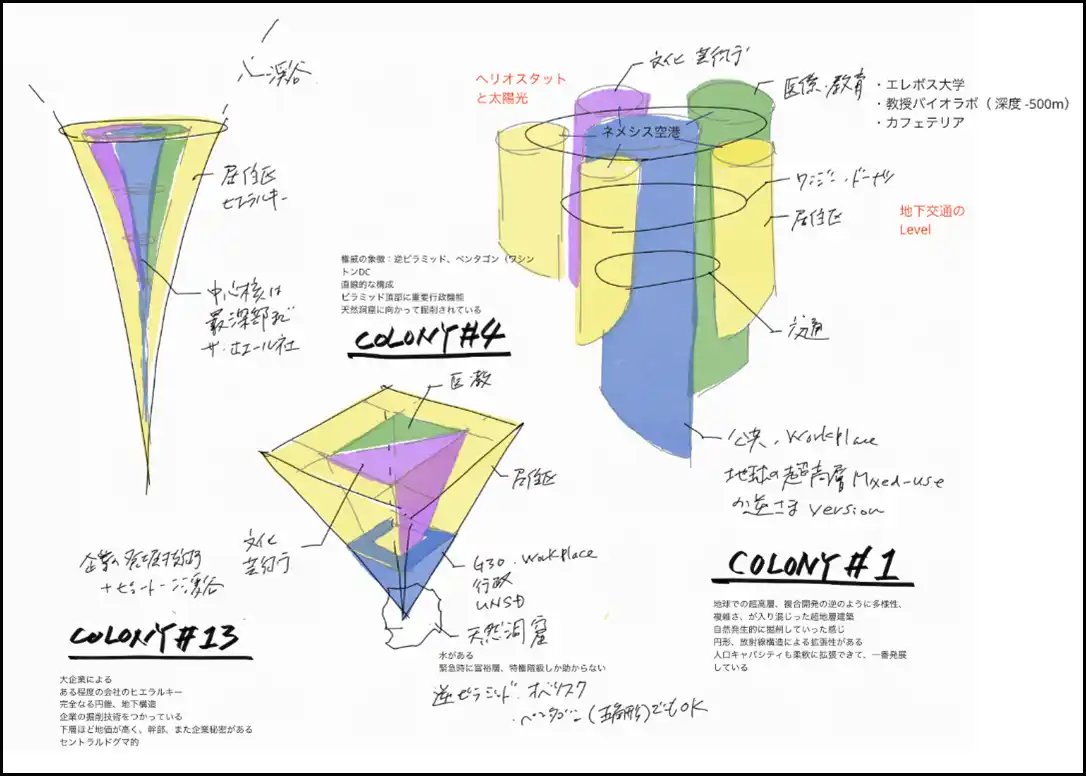 渓谷
居住区
ヒエラルキー
中心核は
最深部まで
ザ・ホエール社
企業の
渓谷
COLONY #13
大企業による
ある程度の会社のヒエラルキー
完全なる円錐、地下構造
企業の掘削技術をつかっている
下層ほど地価が高く、幹部、また企業秘密がある
セントラルドグマ的
権威の象徴：逆ピラミッド、ペンタゴン（ワシン
トンDC
直線的な構成
ピラミッド頂部に重要行政機能
天然洞窟に向かって掘削されている
COLONY #4
医教
居住区
文化
芸術庁
G30・Workplace
行政
天然洞窟
水がある
緊急時に富裕層、特権階級しか助からない
逆ピラミッド・オベリスク
・ペンタゴン(五角形)でもOK
ヘリオスタット
と太陽光
文化 芸術庁
医療・教育
・エレボス大学
・教授バイオラボ（ 深度 -500m）
・カフェテリア
ネメシス空港
居住区
地下交通の
Level
交通
公共、Workplace
地球の超高層 Mixed-use
が逆さま version
COLONY #1
地球での超高層、複合開発の逆のように多様性、
複雑さ、が入り混じった超地層建築
自然発生的に掘削していった感じ
円形、放射線構造による拡張性がある
人口キャパシティも柔軟に拡張できて、一番発展
している